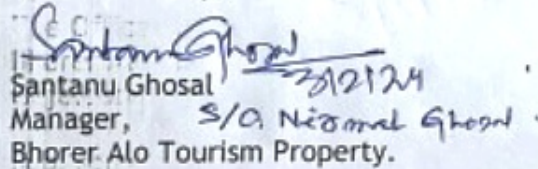 Santanu Ghosal
Santanu Ghosal 3/2/24
Manager, S/O. Nirmal Ghosal.
Bhorer Alo Tourism Property.